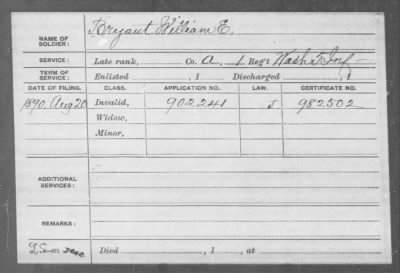 NAME OF SOLDIER: Bryant William E.
SERVICE: Late rank, Co. A, 1 Reg't Wash T Inf
TERM OF SERVICE: Enlisted , 1 Discharged , 1
DATE OF FILING. CLASS. APPLICATION NO. LAW. CERTIFICATE NO.
1890, Aug 20 Invalid, 902241 J 982502
Widow,
Minor,
ADDITIONAL SERVICES:
REMARKS:
Died , 1 , at